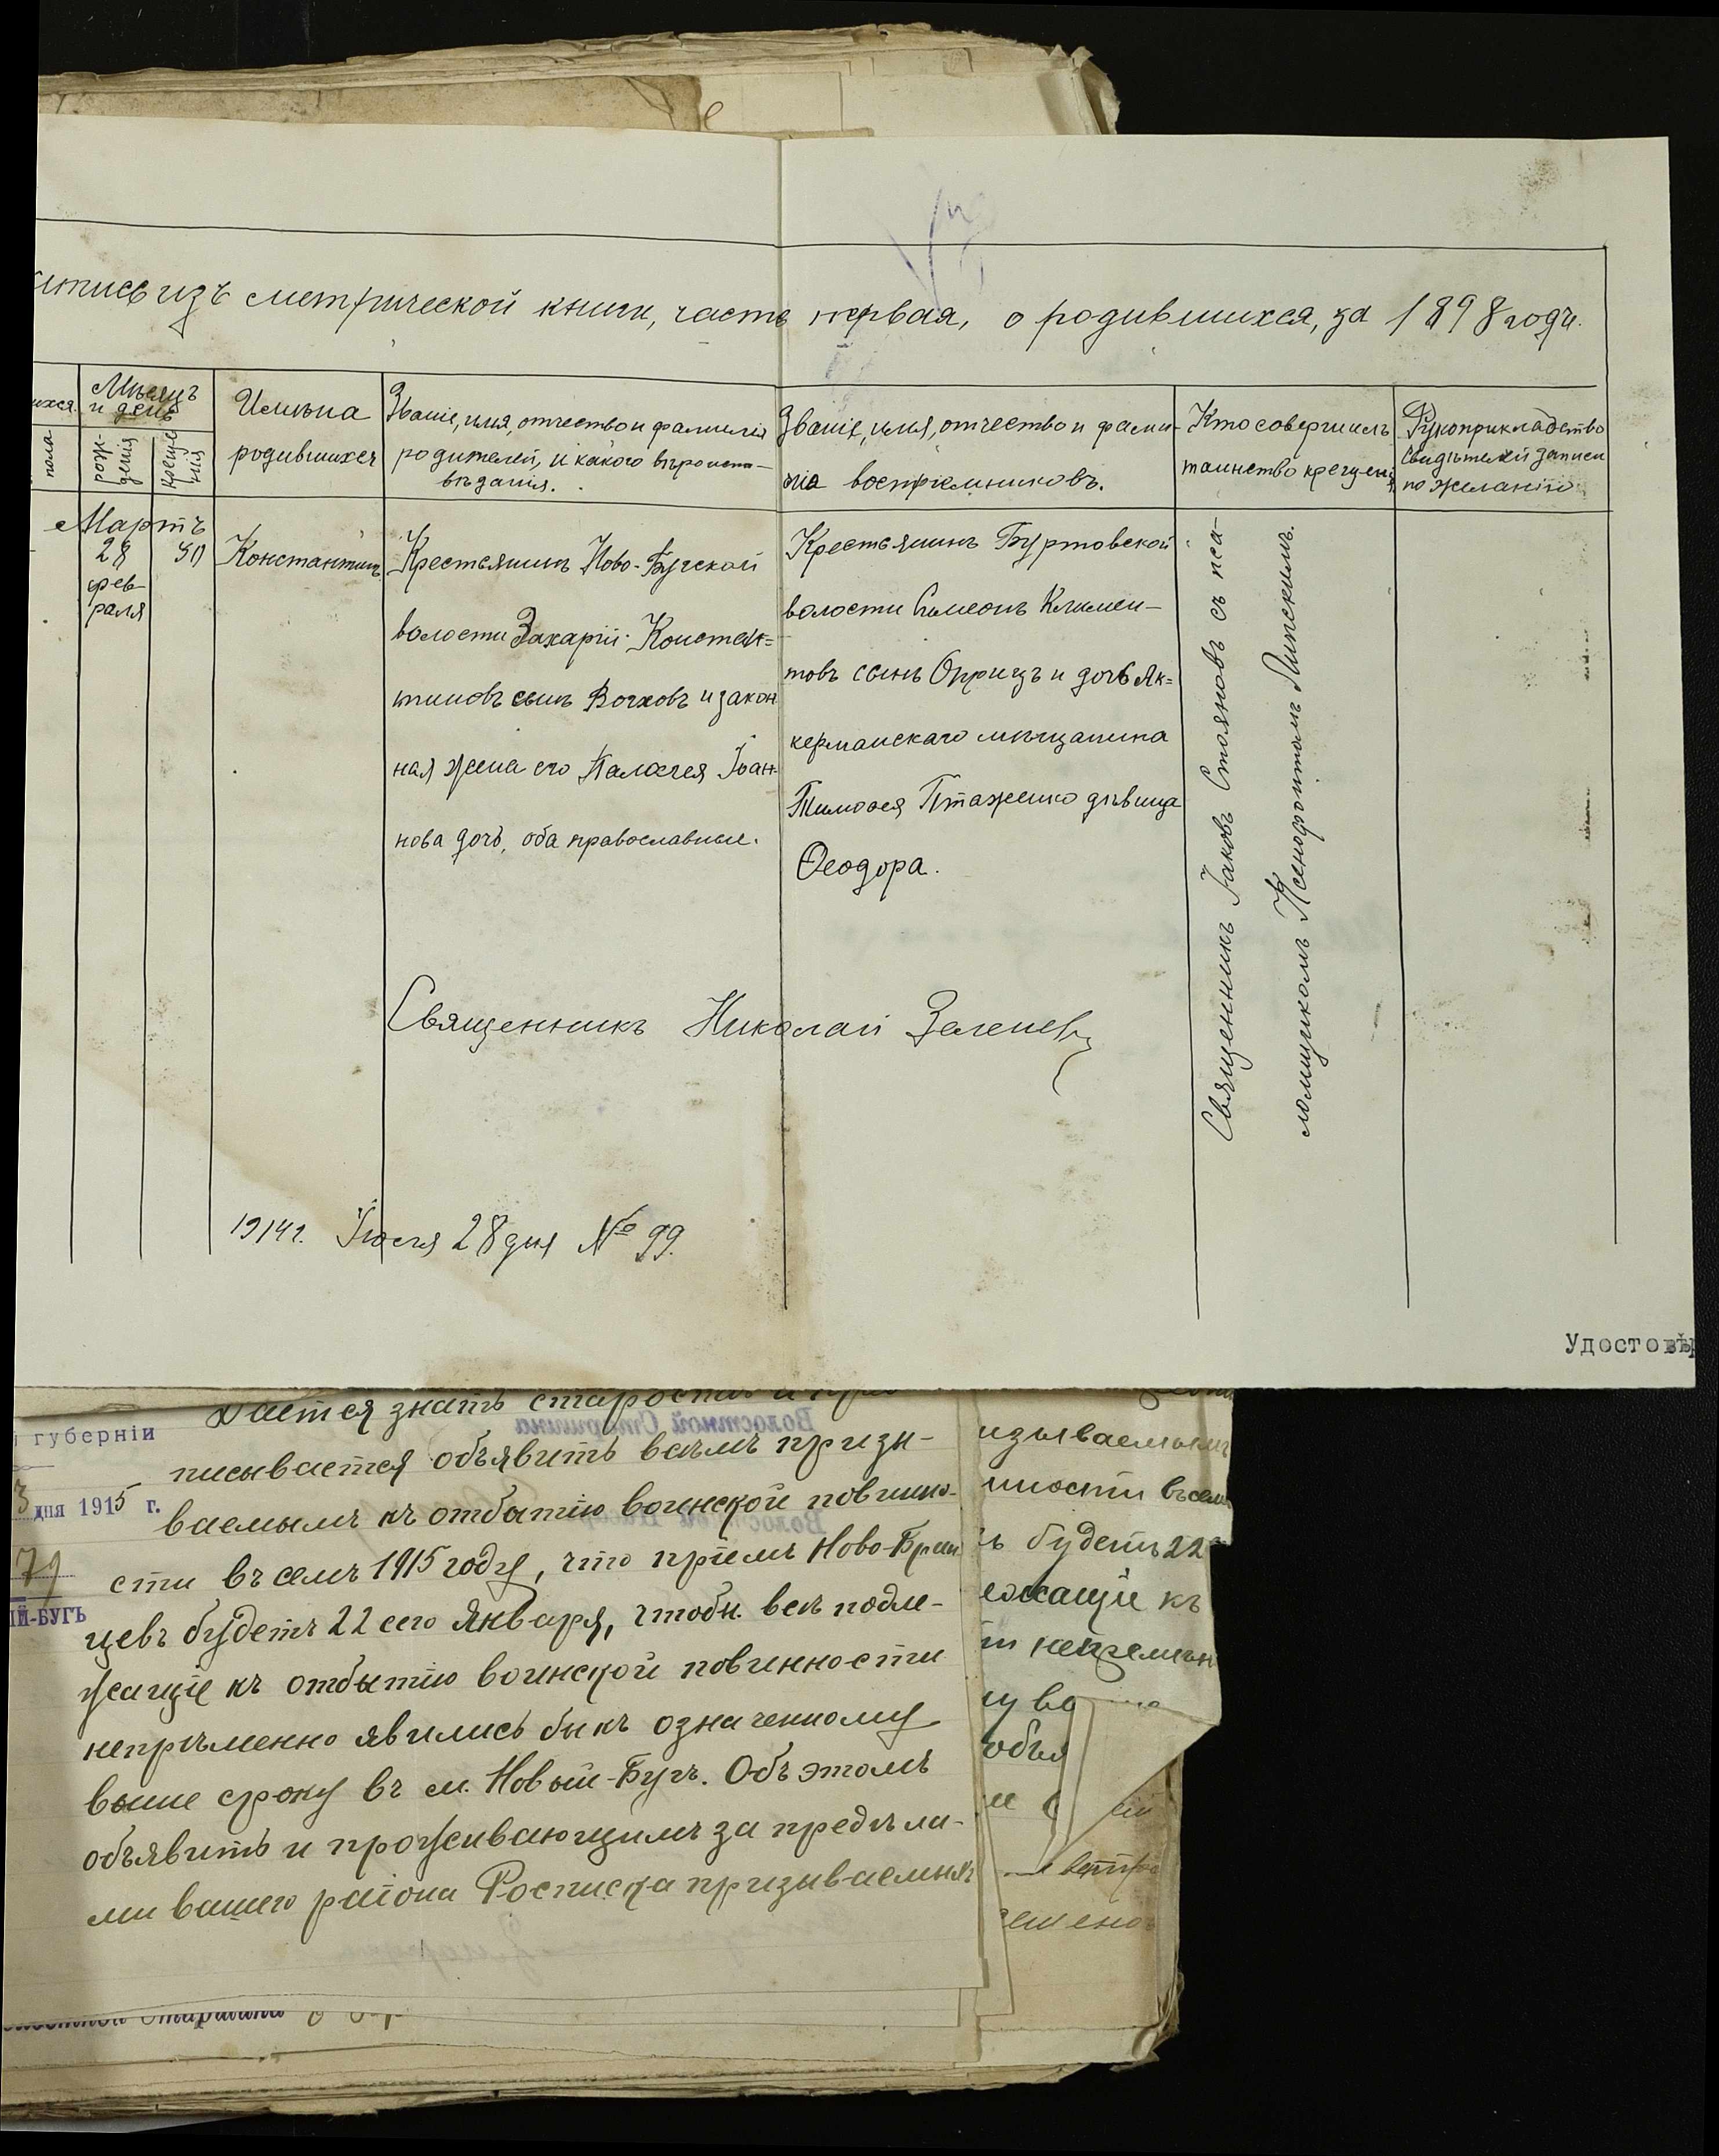 изъ метрической книги, часть первая, о родившихся, за 1898 годъ.
ихся.
пола
Мѣсяцъ
и день
рож-
денія
креще
нія
Имена
родившихся
Званіе, имя, отчество и фамилія
родителей, и какого вѣроиспо-
вѣданія.
Званіе, имя, отчество и фами-
лія воспріемниковъ.
Кто совершилъ
таинство крещенія
Рукоприкладство
свидѣтелей записи
по желанію
Мартъ
28
фев-
раля
30
Константинъ
Крестьянинъ Ново-Бугской
волости Захарій Констан=
тиновъ сынъ Волховъ и закон
ная жена его Пелагея Іоан-
нова дочь, оба православные.
Крестьянинъ Буртовской
волости Симеонъ Климен-
товъ сынъ Оприцъ и дочь Ак=
керманскаго мѣщанина
Тимофея Пташенко дѣвица
Ѳеодора.
Священникъ Іаковъ Стояновъ съ пса-
ломщикомъ Ксенофонтомъ Липскимъ.
Священникъ Николай Зеленев
1914 г. Іюля 28 дня № 99.
Удостовѣр
дается знать
губерніи
Волостной Старшина
писывается объявить всѣмъ призы-
3 дня 1915 г.
ваемымъ къ отбытію воинской повинно-
79
сти въ семъ 1915 году, что пріемъ Ново-Бран
ІЙ-БУГЪ
цевъ будетъ 22 сего Января, чтобы всѣ подле-
жащіе къ отбытію воинской повинности
непремѣнно явились бы къ означенному
выше сроку въ м. Новый-Бугъ. Объ этомъ
объявить и проживающимъ за предѣла-
ми вашего района Росписка призываемыхъ
изываемымъ
нности въ сем
ъ будетъ 22
ежащіе къ
и непремѣн
объя
Старшина